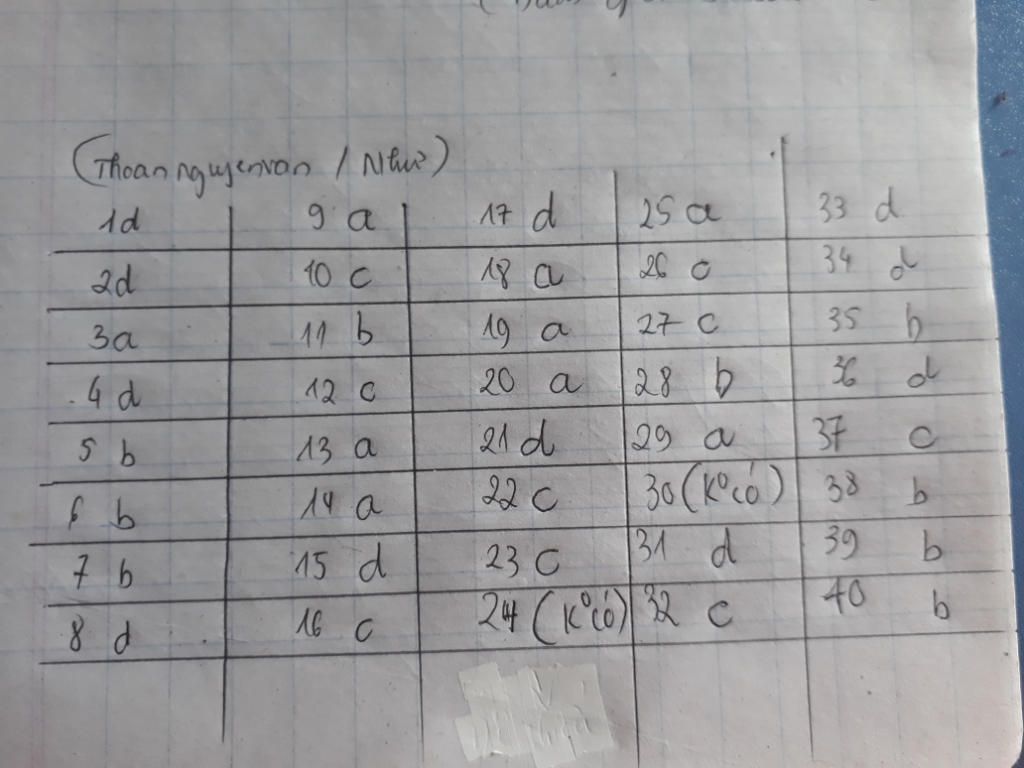 (Thoannguyenvan / Như)
1d 9 a 17 d 25 a 33 d
2d 10 c 18 a 26 c 34 d
3a 11 b 19 a 27 c 35 b
4 d 12 c 20 a 28 b 36 d
5 b 13 a 21 d 29 a 37 c
6 b 14 a 22 c 30 (K° có) 38 b
7 b 15 d 23 c 31 d 39 b
8 d 16 c 24 (K° có) 32 c 40 b